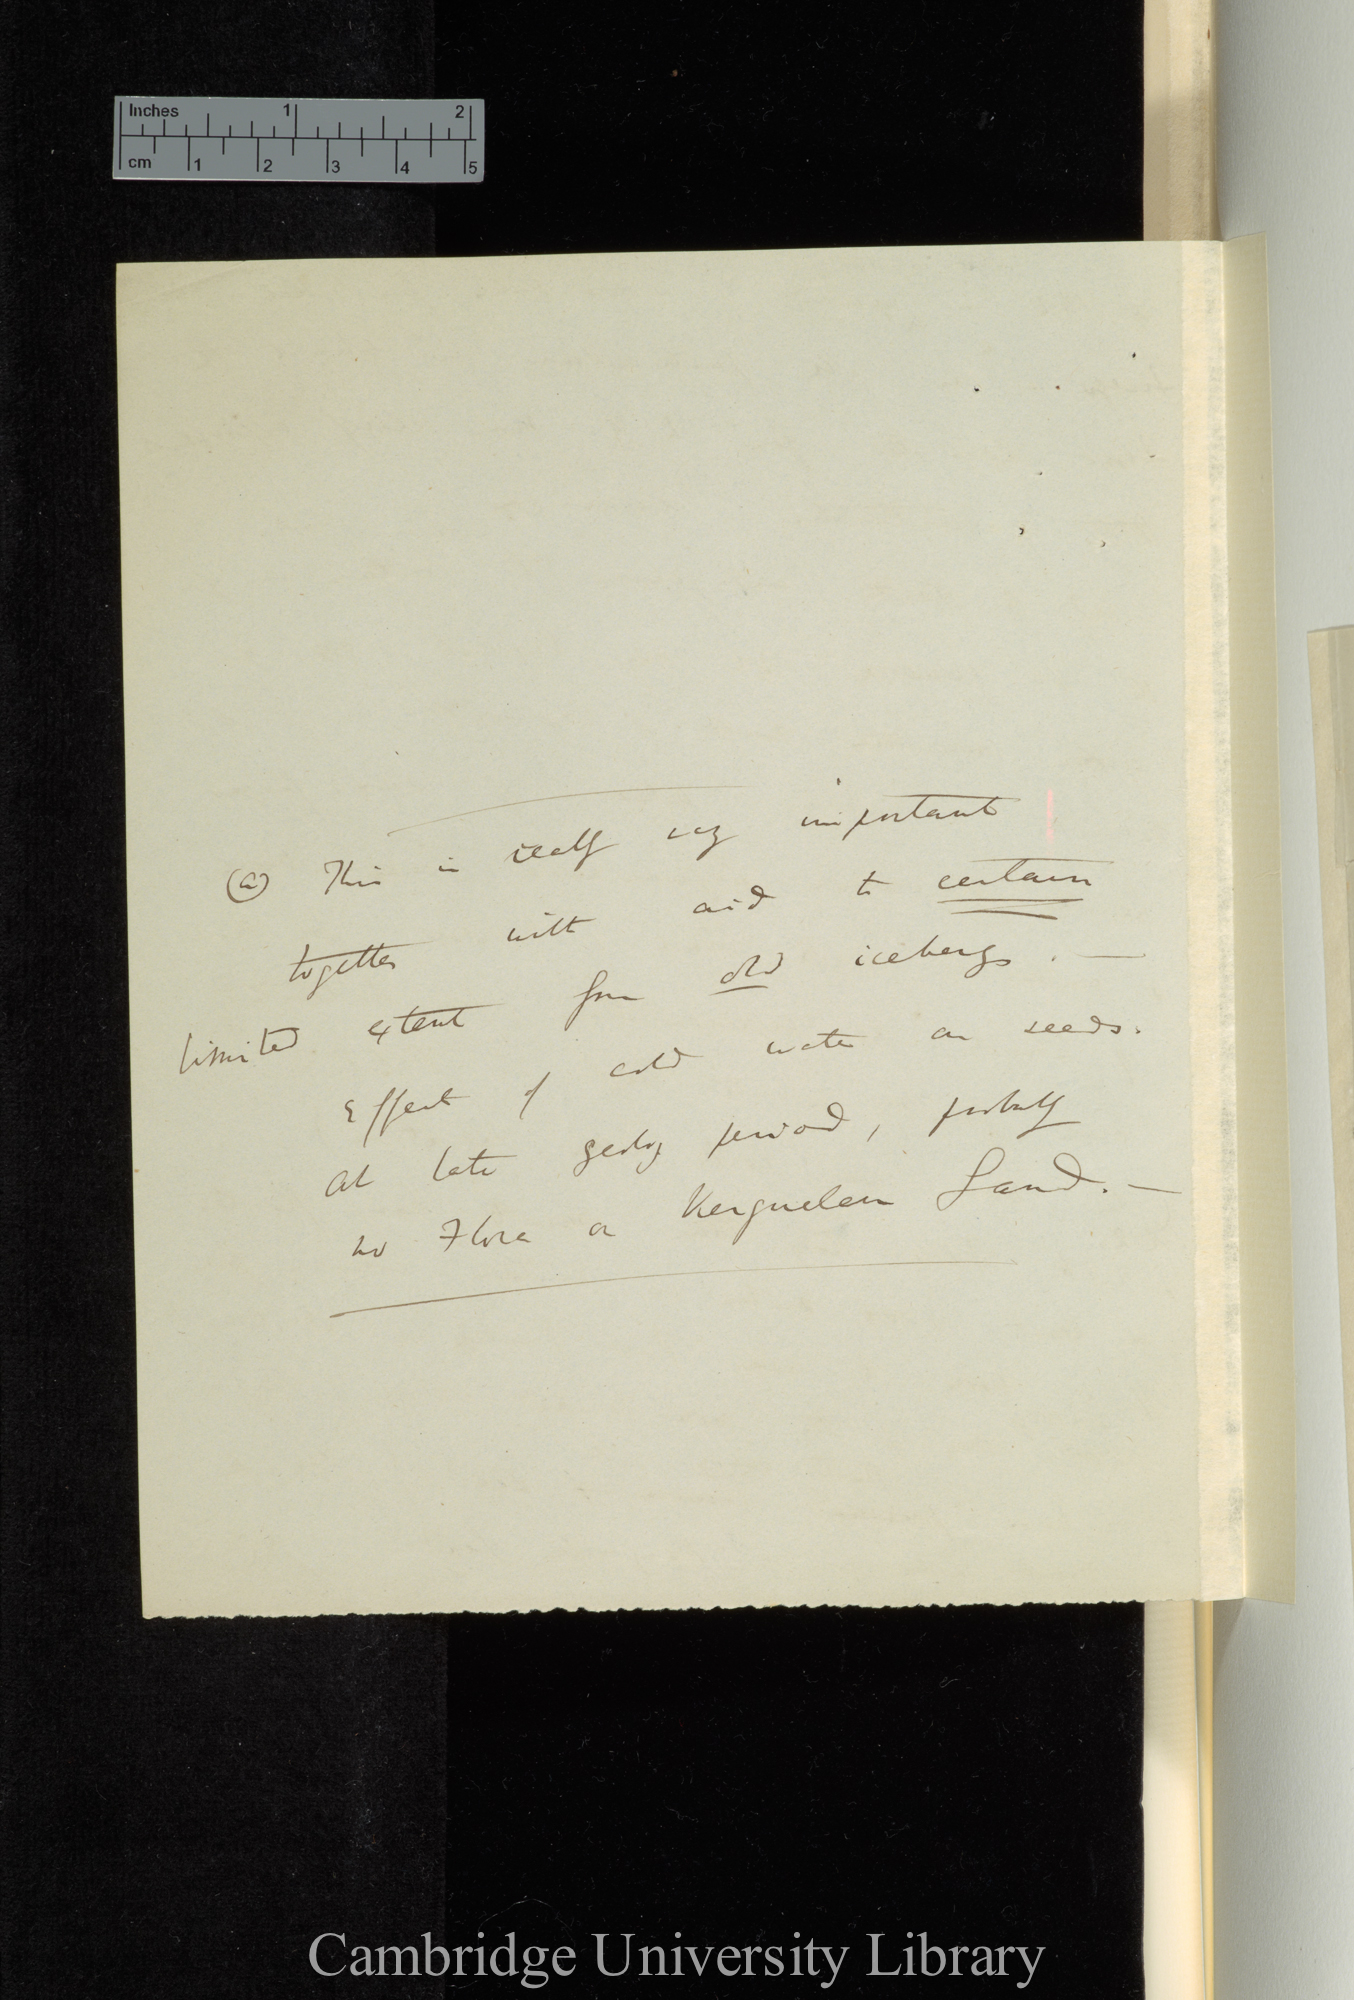 Inches 1 2
cm 1 2 3 4 5
(a) This is really very important
together with aid to certain
limited extent from old icebergs. —
Effect of cold water on seeds.
At late geolog period, probably
no Flora on Kerguelen Land. —
Cambridge University Library